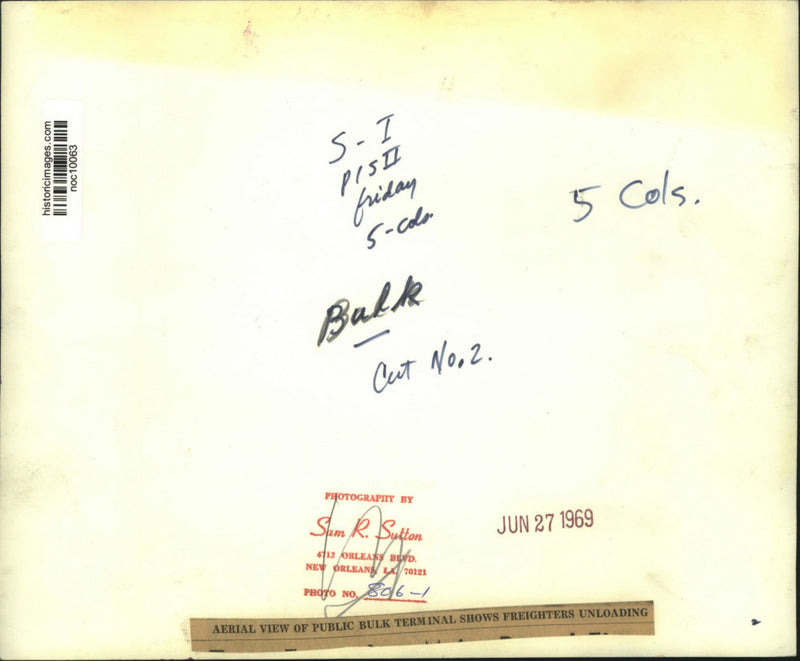 historicimages.com
noc10063
S-I
P15 II
friday
5-cols.
5 Cols.
Bulk
Cut No. 2.
PHOTOGRAPHY BY
Sam R. Sutton
4713 ORLEANS BLVD.
NEW ORLEANS, LA. 70121
PHOTO NO. 806-1
JUN 27 1969
AERIAL VIEW OF PUBLIC BULK TERMINAL SHOWS FREIGHTERS UNLOADING
2